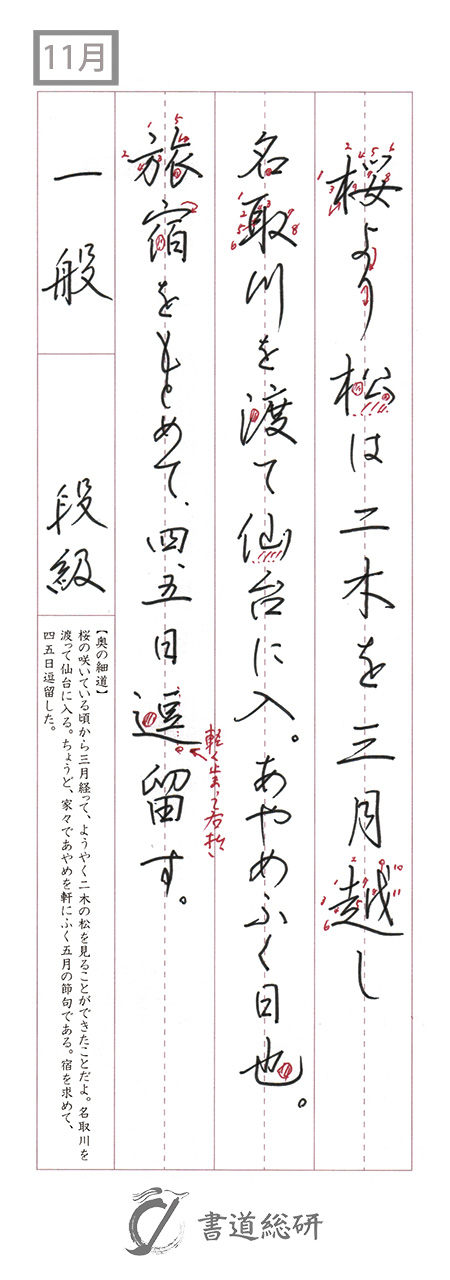 11月
桜より松は二木を三月越し
名取川を渡て仙台に入。あやめふく日也。
旅宿をもとめて、四、五日逗留す。
軽く止まって右払き
一般
段級
【奥の細道】
桜の咲いている頃から三月経って、ようやく二木の松を見ることができたことだよ。名取川を
渡って仙台に入る。ちょうど、家々であやめを軒にふく五月の節句である。宿を求めて、
四五日逗留した。
書道総研